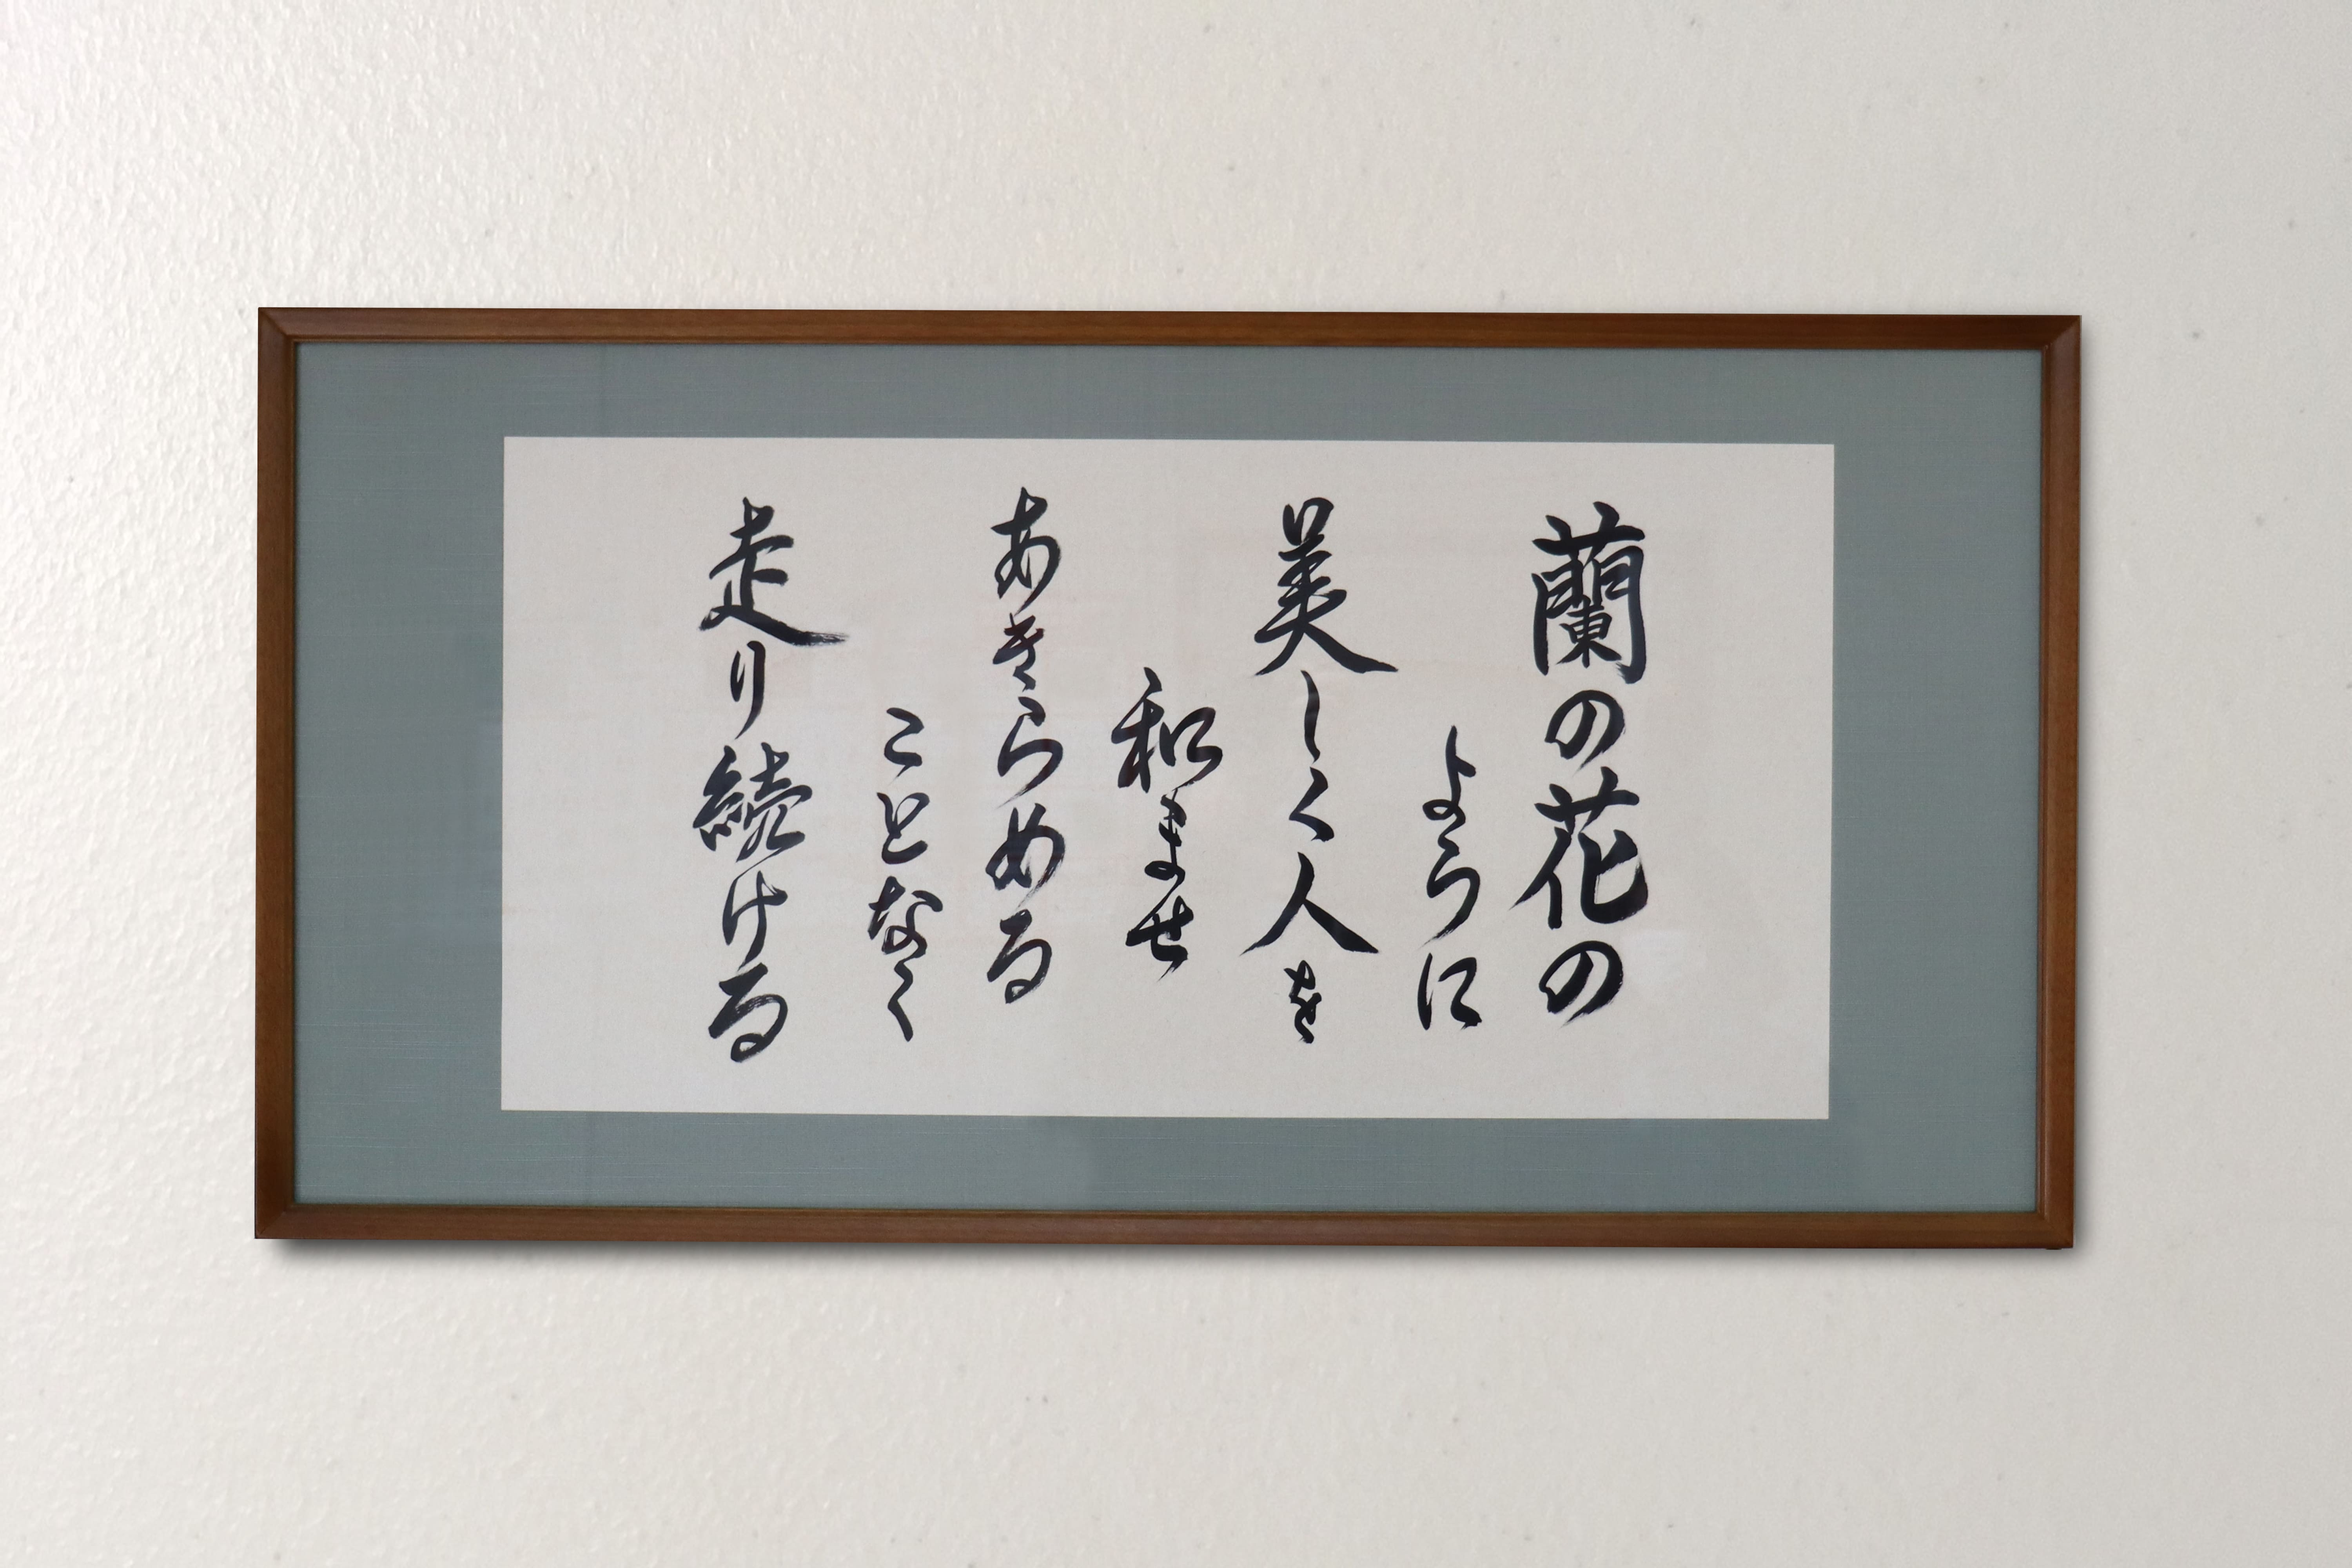 蘭の花の
ように
美しく人を
和ませ
あきらめる
ことなく
走り続ける